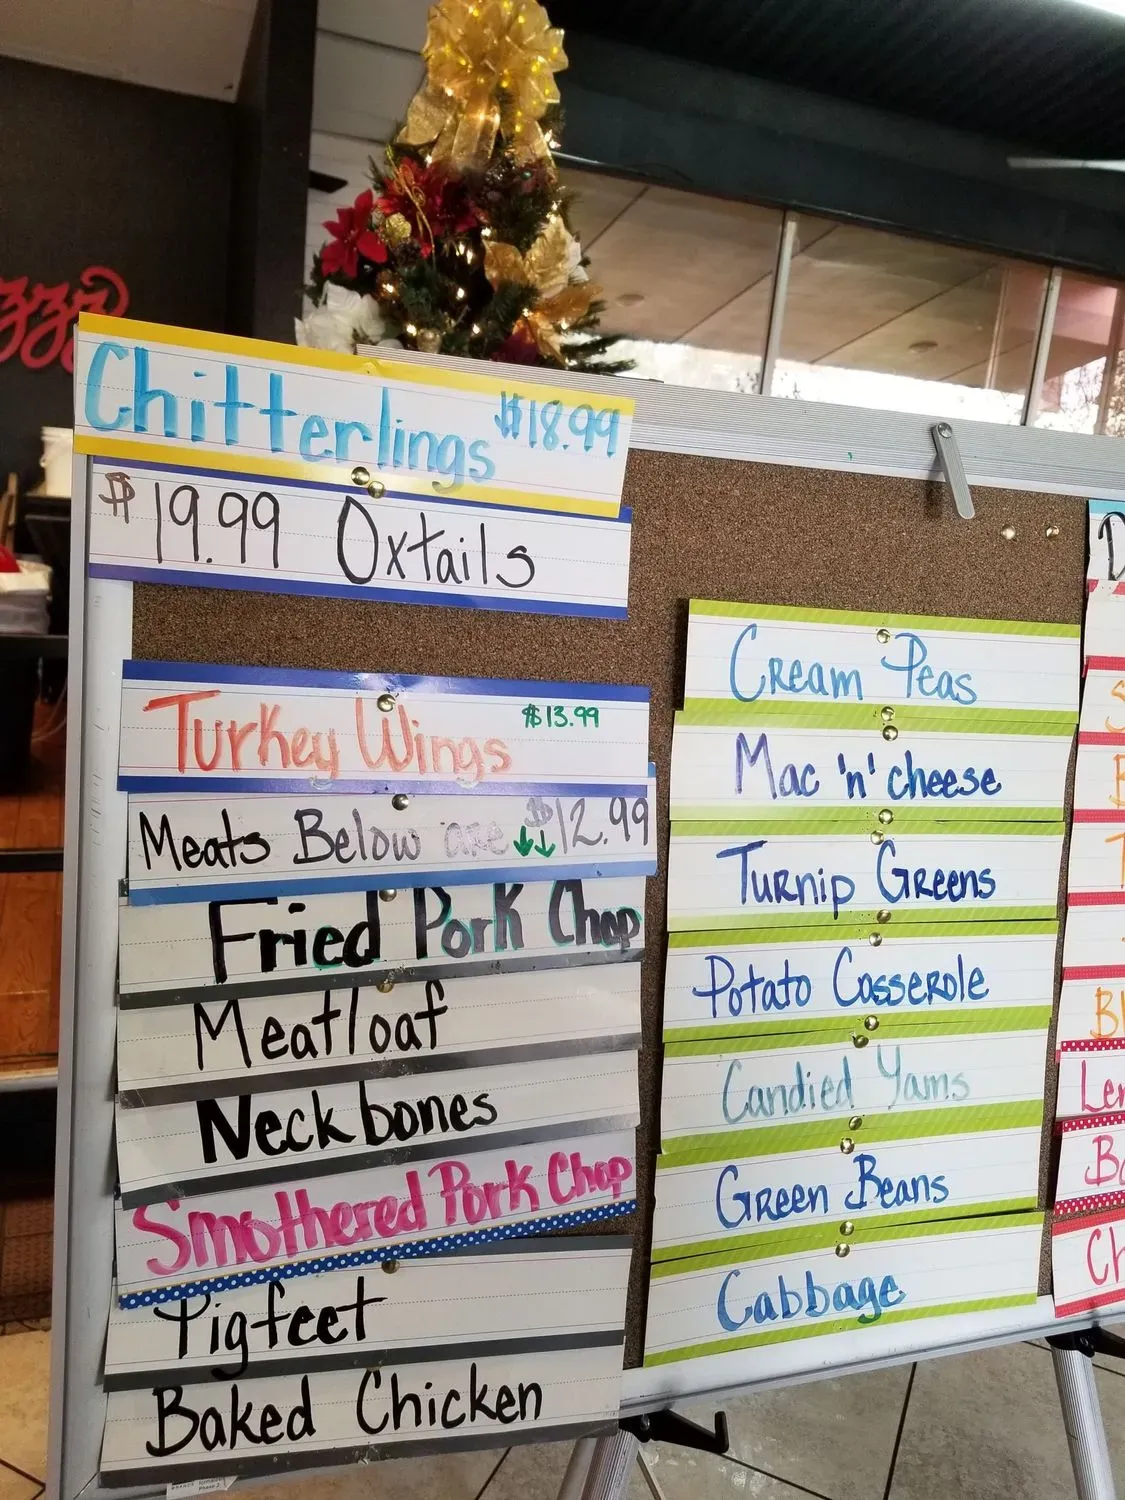 Chitterlings $18.99
$19.99 Oxtails
Turkey Wings $13.99
Meats Below are ↓↓ $12.99
Fried Pork Chop
Meatloaf
Neckbones
Smothered Pork Chop
Pigfeet
Baked Chicken
Cream Peas
Mac 'n' cheese
Turnip Greens
Potato Casserole
Candied Yams
Green Beans
Cabbage